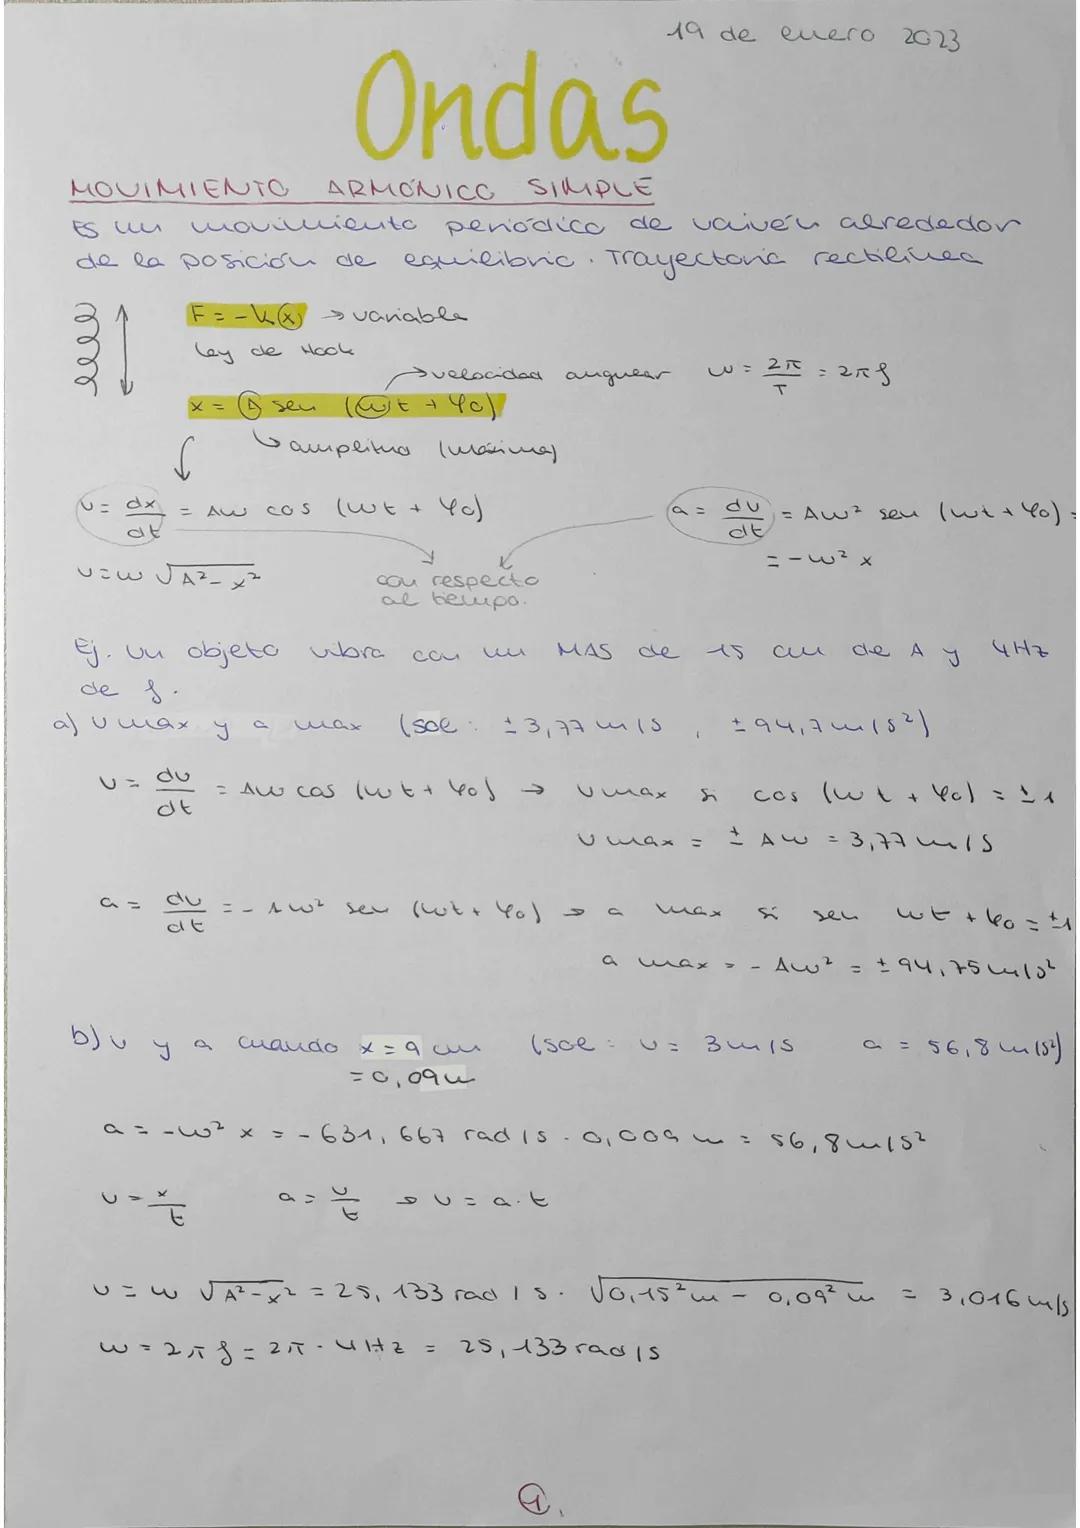 19 de enero 2023
Ondas
MOVIMIENTO ARMÓNICO SIMPLE
Es un movimiento periódico de vaivén alrededor
de la posición de equilibrio. Trayectoria rectilínea
F = -k(x) → variable
Ley de Hook
→ velocidad angular ω = 2π/T = 2πf
x = A sen (ωt + φ0)
↳ amplitud (máxima)
v = dx/dt = Aω cos (ωt + φ0)
a = dv/dt = Aω² sen (ωt + φ0) =
= -ω² x
v = ω √A² - x²
con respecto
al tiempo.
Ej. Un objeto vibra con un MAS de 15 cm de A y 4Hz
de f.
a) v max y a max (sol: ±3,77 m/s, ±94,7 m/s²)
v = dv/dt = Aω cos (ωt + φ0) → v max si cos (ωt + φ0) = ±1
v max = ± Aω = 3,77 m/s
a = dv/dt = -Aω² sen (ωt + φ0) → a max si sen ωt + φ0 = ±1
a max = - Aω² = ±94,75 m/s²
b) v y a cuando x = 9 cm (sol: v = 3 m/s a = 56,8 m/s²)
= 0,09m
a = -ω² x = -631,667 rad/s · 0,009 m = 56,8 m/s²
v = x/t a = v/t → v = a·t
v = ω √A² - x² = 25,133 rad/s · √0,15² m - 0,09² m = 3,016 m/s
ω = 2πf = 2π · 4Hz = 25,133 rad/s
1.